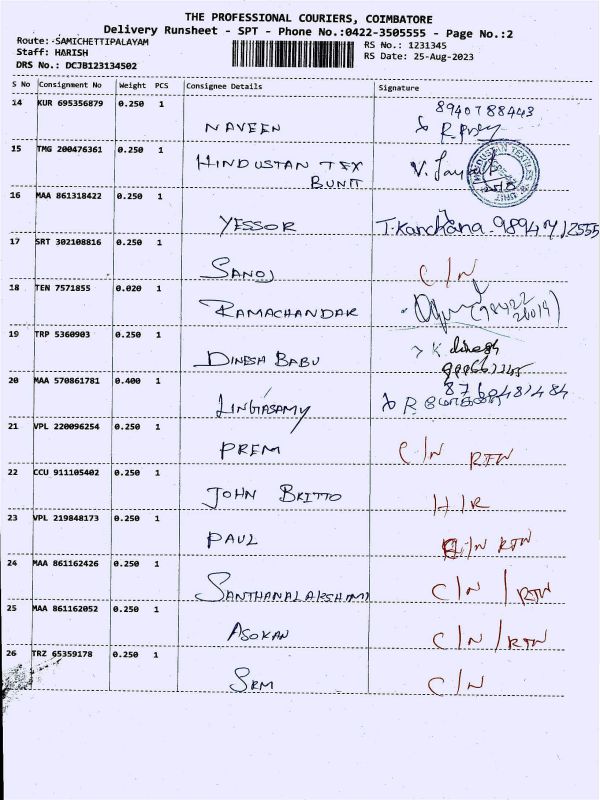 THE PROFESSIONAL COURIERS, COIMBATORE
Delivery Runsheet - SPT - Phone No.:0422-3505555 - Page No.:2
Route: SAMICHETTIPALAYAM
RS No.: 1231345
Staff: HARISH
RS Date: 25-Aug-2023
DRS No.: DCJB123134502
S No Consignment No Weight PCS Consignee Details Signature
14 KUR 695356879 0.250 1
8940788443
NAVEEN
15 TMG 200476361 0.250 1
HINDUSTAN TEX
BUNIT
HINDUSTAN TEXTILES
16 MAA 861318422 0.250 1
YESSOR T.Kanchana 9894712555
17 SRT 302108816 0.250 1
SANOJ C/N
18 TEN 7571855 0.020 1
RAMACHANDAR
19 TRP 5360903 0.250 1
DINESH BABU K dinesh
20 MAA 570861781 0.400 1
LINGASAMY
21 VPL 220096254 0.250 1
PREM C/N RTN
22 CCU 911105402 0.250 1
JOHN BRITTO H/R
23 VPL 219848173 0.250 1
PAUL C/N RTN
24 MAA 861162426 0.250 1
SANTHANALAKSHMI C/N / RTN
25 MAA 861162052 0.250 1
ASOKAN C/N / RTN
26 TRZ 65359178 0.250 1
SRM C/N